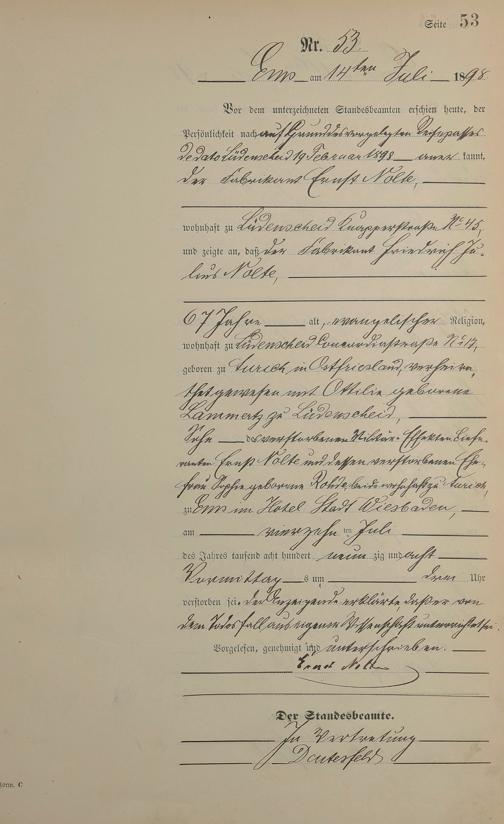 Seite 53
Nr. 53.
Ems am 14ten Juli 1898
Vor dem unterzeichneten Standesbeamten erschien heute, der
Persönlichkeit nach auf Grund des vorgelegten Reisepasses
de dato Lüdenscheid 19 Februar 1898 aner kannt,
der Fabrikant Ernst Nolte,
wohnhaft zu Lüdenscheid Knapperstraße No 45,
und zeigte an, daß der Fabrikant Friedrich Ju-
lius Nolte,
67 Jahre alt, evangelischer Religion,
wohnhaft zu Lüdenscheid Concordiastraße No 17,
geboren zu Aurich in Ostfriesland, verheira-
thet gewesen mit Ottilie geborene
Lammertz zu Lüdenscheid,
Sohn des verstorbenen Militär-Effekten Liefe-
ranten Ernst Nolte und dessen verstorbenen Ehe-
frau Sophie geborene Rohde, beide wohnhaft zu Aurich,
zu Ems im Hotel Stadt Wiesbaden,
am vierzehn ten Juli
des Jahres tausend acht hundert neun zig und acht
Vormittag s um drei Uhr
verstorben sei. Der Anzeigende erklärte, daß er von
dem Todesfall aus eigener Wissenschaft unterrichtet sei.
Vorgelesen, genehmigt und unterschrieben.
Ernst Nolte
Der Standesbeamte.
In Vertretung